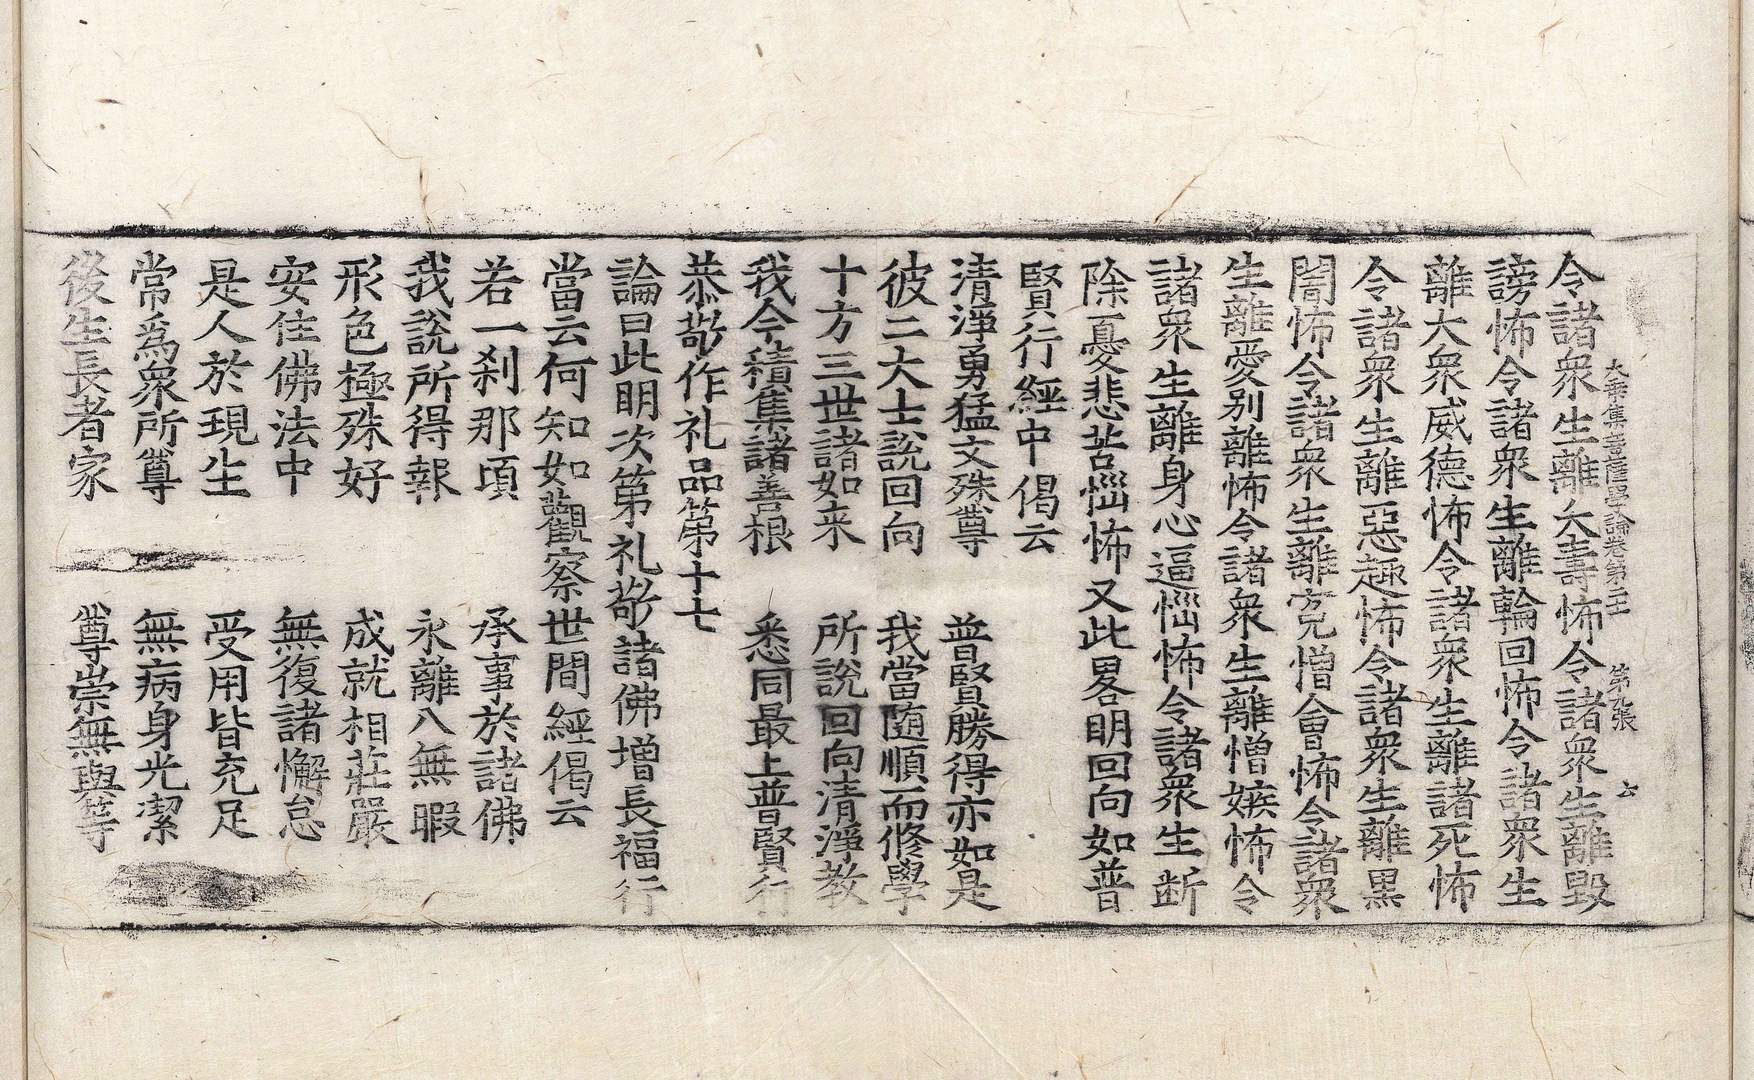 大乘集菩薩學論卷第二十二 第九張 六
令諸衆生離夭壽怖令諸衆生離毀
謗怖令諸衆生離輪回怖令諸衆生
離大衆威德怖令諸衆生離諸死怖
令諸衆生離惡趣怖令諸衆生離黒
闇怖令諸衆生離寃憎會怖令諸衆
生離愛别離怖令諸衆生離憎嫉怖令
諸衆生離身心逼惱怖令諸衆生断
除憂悲苦惱怖又此畧明回向如普
賢行經中偈云
清淨勇猛文殊尊 普賢勝得亦如是
彼二大士說回向 我當随順而修學
十方三世諸如来 所說回向清淨教
我今積集諸善根 悉同最上普賢行
恭敬作礼品第十七
論曰此明次第礼敬諸佛增長福行
當云何知如觀察世間經偈云
若一刹那頃 承事於諸佛
我說所得報 永離八無暇
形色極殊好 成就相莊嚴
安住佛法中 無復諸懈怠
是人於現生 受用皆充足
常爲衆所尊 無病身光潔
後生長者家 尊崇無與等